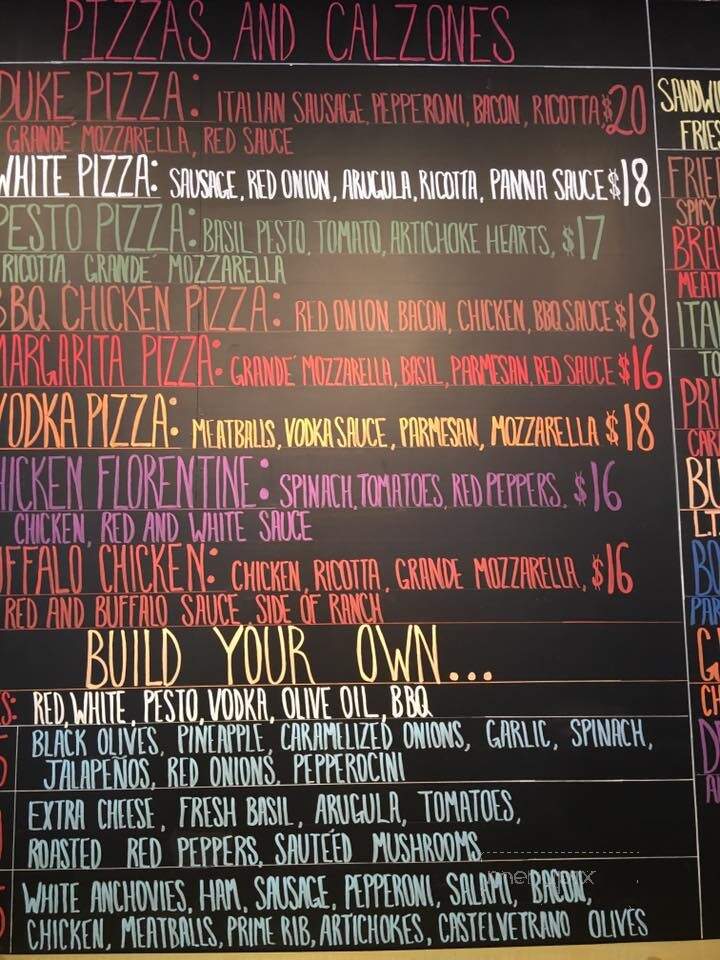 PIZZAS AND CALZONES
DUKE PIZZA: ITALIAN SAUSAGE, PEPPERONI, BACON, RICOTTA, $20
GRANDE' MOZZARELLA, RED SAUCE
WHITE PIZZA: SAUSAGE, RED ONION, ARUGULA, RICOTTA, PANNA SAUCE $18
PESTO PIZZA: BASIL PESTO, TOMATO, ARTICHOKE HEARTS, $17
RICOTTA, GRANDE' MOZZARELLA
BBQ CHICKEN PIZZA: RED ONION, BACON, CHICKEN, BBQ SAUCE $18
MARGARITA PIZZA: GRANDE' MOZZARELLA, BASIL, PARMESAN, RED SAUCE $16
VODKA PIZZA: MEATBALLS, VODKA SAUCE, PARMESAN, MOZZARELLA $18
HICKEN FLORENTINE: SPINACH, TOMATOES, RED PEPPERS, $16
CHICKEN, RED AND WHITE SAUCE
UFFALO CHICKEN: CHICKEN, RICOTTA, GRANDE MOZZARELLA, $16
RED AND BUFFALO SAUCE, SIDE OF RANCH
BUILD YOUR OWN...
S: RED, WHITE, PESTO, VODKA, OLIVE OIL, BBQ
BLACK OLIVES, PINEAPPLE, CARAMELIZED ONIONS, GARLIC, SPINACH,
JALAPEÑOS, RED ONIONS, PEPPEROCINI
EXTRA CHEESE, FRESH BASIL, ARUGULA, TOMATOES,
ROASTED RED PEPPERS, SAUTÉED MUSHROOMS
WHITE ANCHOVIES, HAM, SAUSAGE, PEPPERONI, SALAMI, BACON,
CHICKEN, MEATBALLS, PRIME RIB, ARTICHOKES, CASTELVETRANO OLIVES
SANDWI
FRIES
FRIE
SPICY
BRA
MEAT
ITA
TO
PRI
CAR
BU
L.T.
BO
PAR